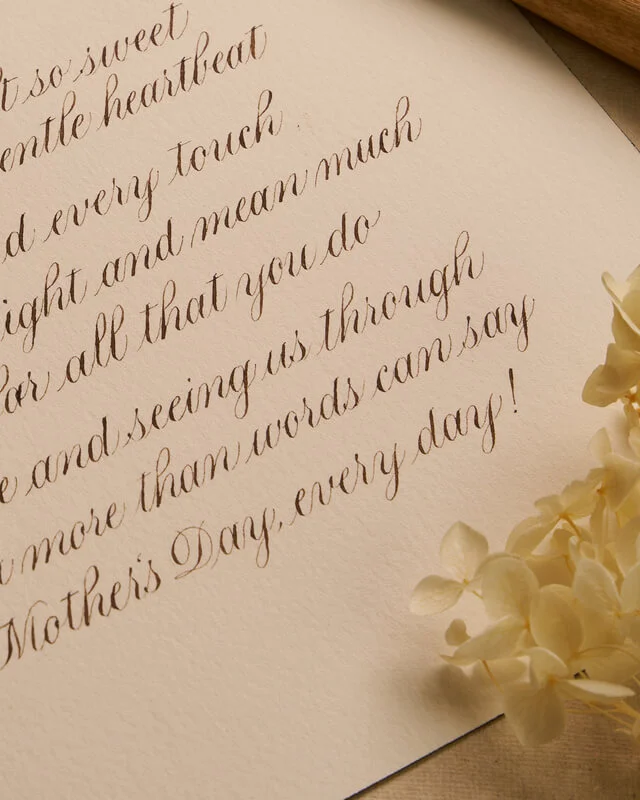 so sweet
heartbeat
every touch
and mean much
all that you do
and seeing us through
more than words can say
Mother's Day, every day!